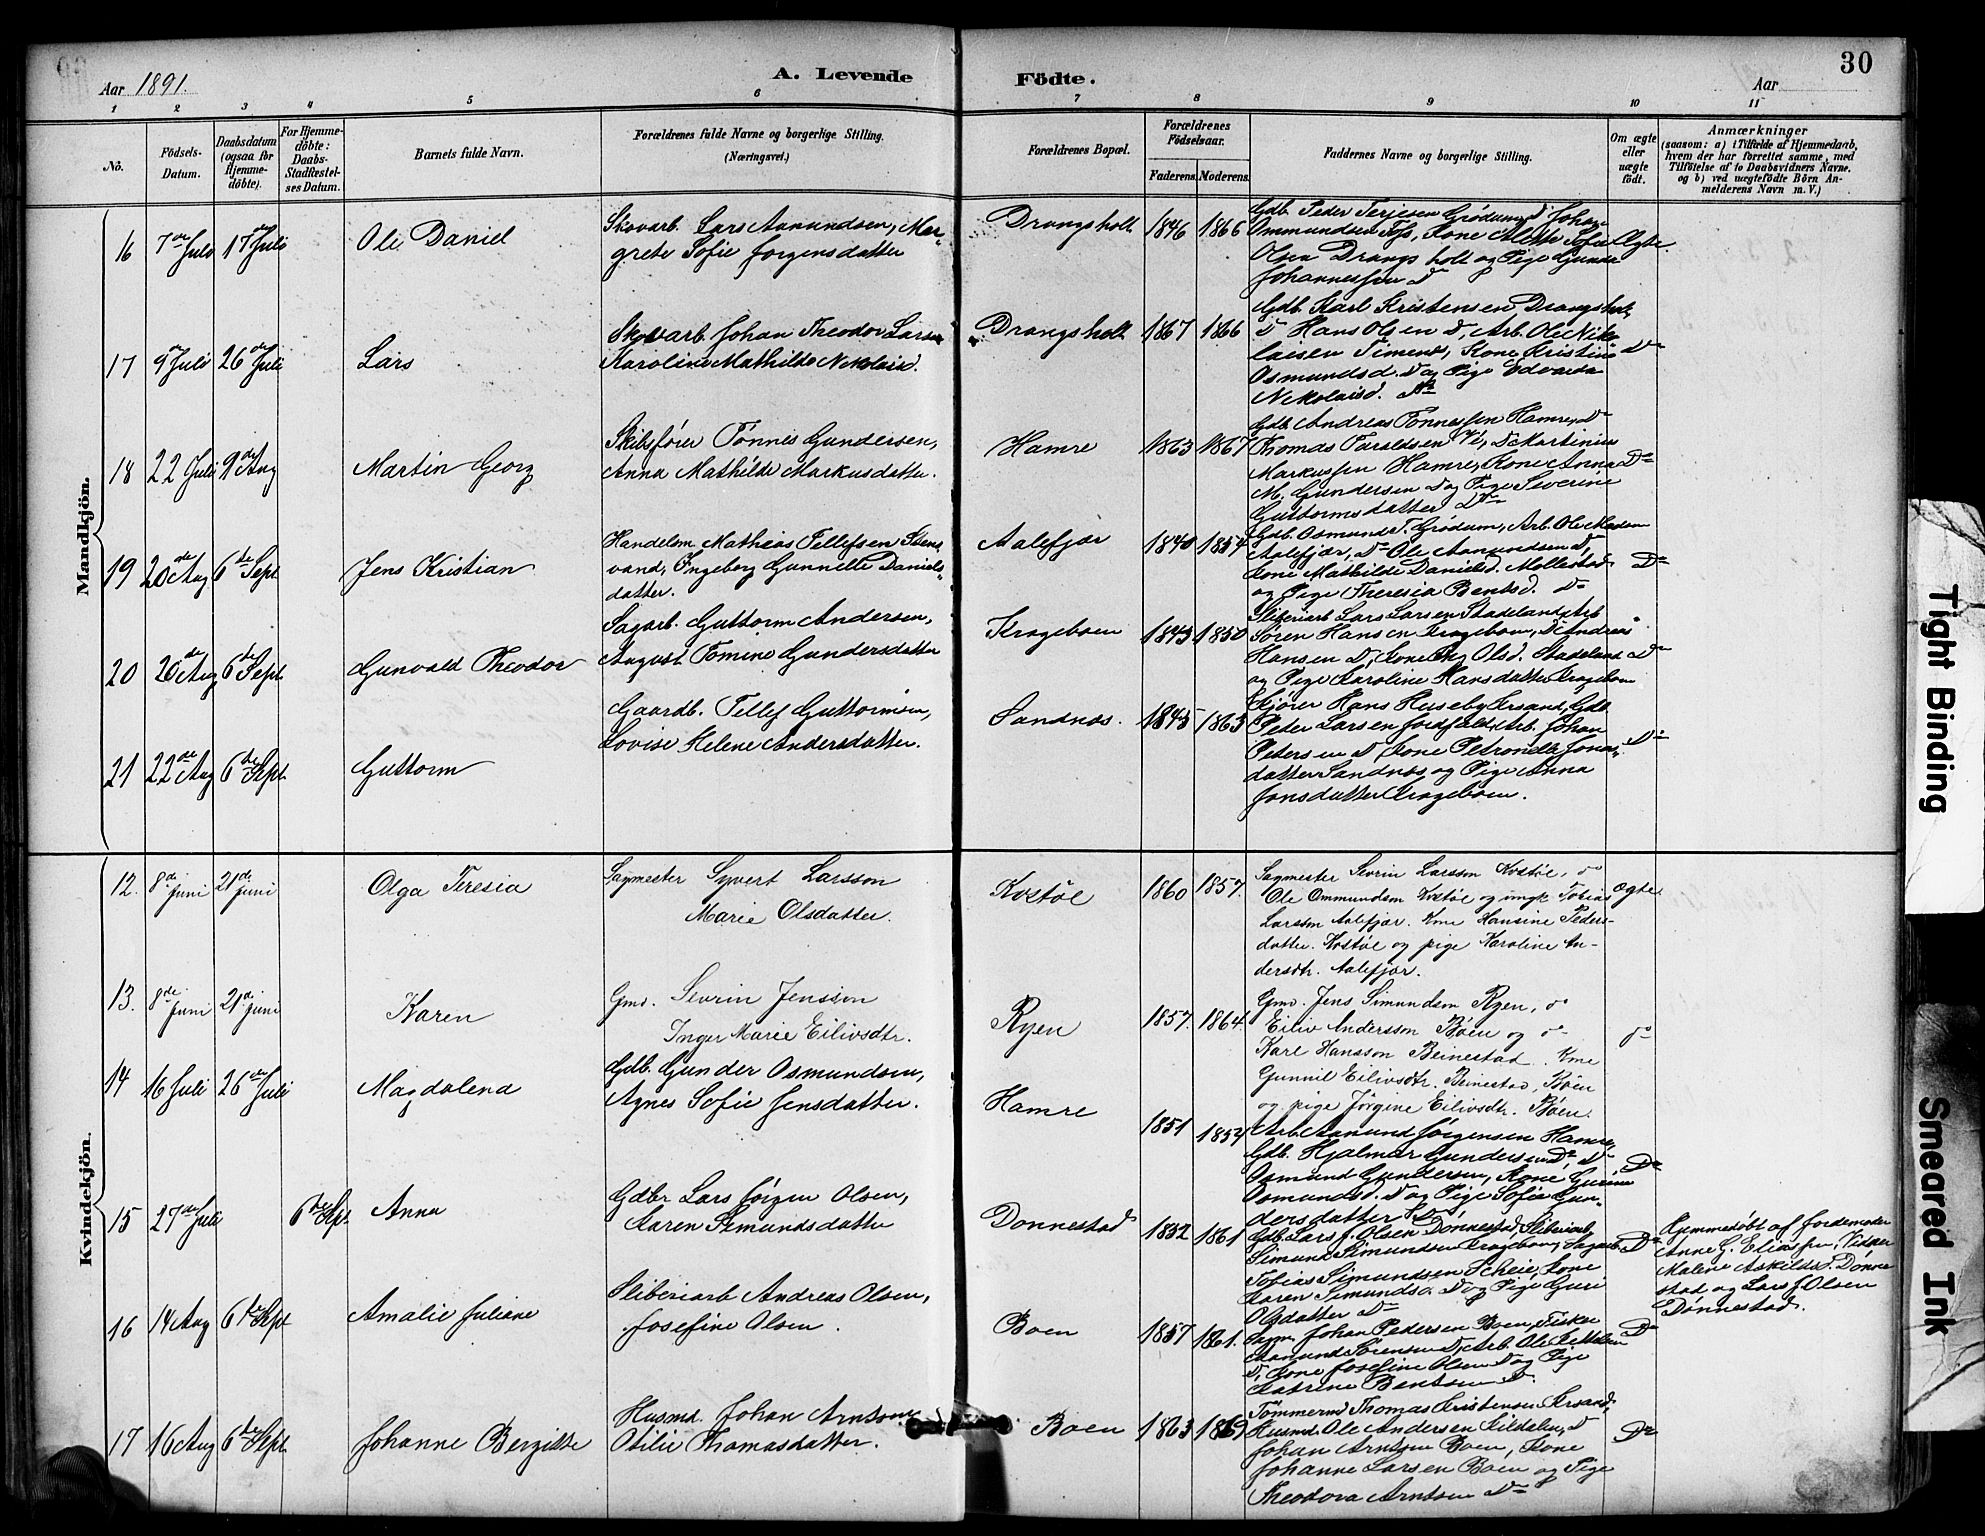 Aar 1891.
A. Levende Födte.
Aar
30
1 2 3 4 5 6 7 8 9 10 11
No.
Födsels-Datum.
Daabsdatum (ogsaa for Hjemme-döbte).
For Hjemme-döbte: Daabs-Stadfæstel-ses Datum.
Barnets fulde Navn.
Forældrenes fulde Navne og borgerlige Stilling. (Næringsvei.)
Forældrenes Bopæl.
Forældrenes Födselsaar.
Faderens. Moderens.
Faddernes Navne og borgerlige Stilling.
Om ægte eller uægte födt.
Anmærkninger
(saasom: a) i Tilfælde af Hjemmedaab,
hvem der har forrettet samme, med
Tilföielse af to Daabsvidners Navne,
og b) ved uægtefödte Börn An-
melderens Navn m. V.)
Mandkjön.
16 7de Juli 17de Juli Ole Daniel
Skovarb. Lars Aanundsen, Mar-
grete Sofie Jørgensdatter
Drangsholt 1846 1866
Gdb. Peder Terjesen Grødum, do Johan
Ommundsen Foss, Kone Mette Sofie
Olsen Drangsholt og Pige Gunda
Johannessen do
Ægte
17 9de Juli 26de Juli Lars
Skovarb. Johan Theodor Larsen
Karoline Mathilde Nikolaisd.
Drangsholt 1867 1866
Gdb. Karl Kristensen Drangsholt,
do Hans Olsen do, Arb. Ole Niko-
laisen Timenes, Kone Kristine
Osmundsd. do og Pige Edvarda
Nikolaisd. do
do
18 22 Juli 9de Aug Martin Georg
Skibsfører Tønnes Gundersen,
Anna Mathilde Markusdatter.
Hamre 1863 1867
Gdb. Andreas Tønnessen Hamre, do
Thomas Taraldsen Ve, do Martinius
Markussen Hamre, Kone Anna
M. Gundersen do og Pige Severine
Guttormsdatter do
do
19 20de Aug 6de Sept Jens Kristian
Handelsm. Mathias Tellefsen Stens-
vand, Ingeborg Gunnelle Daniels-
datter.
Aalefjær 1840 1854
Gdb. Osmund T. Grødum, Arb. Ole Madsen
Aalefjær, do Ole Aanundsen do,
Kone Mathilde Danielsd. Mollestad
og Pige Theresia Bentsd. do
do
20 20de Aug 6de Sept Gunvald Theodor
Sagarb. Guttorm Andersen,
August Tomine Gundersdatter
Krageboen 1843 1850
Sliberiarb Lars Larsen Stadeland, Arb
Søren Hansen Krageboen, do Andreas
Hansen do, Kone Olsd. Stadeland
og Pige Karoline Hansdatter Krageboen
do
21 22de Aug 6de Sept Guttorm
Gaardb. Tellef Guttormsen,
Lovise Helene Andersdatter.
Sandnæs. 1845 1863
Hans Huseby Krsand, Gdb
Peder Larsen Arb. Johan
Petersen do Kone Petronelle Jonas-
datter Sandnæs og Pige Anna
Jonsdatter Krageboen.
do
Kvindekjön.
12. 8de Juni 21de Juni Olga Teresia
Sagmester Syvert Larsson
Marie Olsdatter.
Kostøl 1860 1857.
Sagmester Sevrin Larsson Kostøl, do
Ole Ommundsen Kostøl og ungk Tobias
Larsson Aalefjær. Kone Hansine Peders-
datter. Kostøl og pige Karoline An-
dersdtr. Aalefjær.
ægte.
13. 8de Juni 21de Juni Karen
Gmd. Sevrin Jensson
Inger Marie Eilivsdtr.
Ryen 1857. 1864.
Gmd. Jens Simundsen Ryen, do
Eiliv Andersson Bøen og do
Karl Hansson Beinestad. Kone
Gunnil Eilivsdtr. Beinestad, Bøen
og pige Jørgine Eilivsdtr. Bøen.
do
14 16 Juli 26de Juli Magdalena
Gdb. Gunder Osmundsen,
Agnes Sofie Jensdatter.
Hamre 1851 1854
Arb. Aanund Jørgensen Hamre,
Gdb. Hjalmar Gundersen do, do
Osmund Gundersen, Kone Gurine
Osmundsd. do og Pige Sofie Gun-
dersdatter do
do
15 27de Juli 6de Sept Anna
Gdbr Lars Jörgen Olsen,
Karen Simundsdatter
Dønnestad 1852 1861
Gdb. Lars J. Olsen Dønnestad, Sliberiarb.
Simund Simundsen Krageboen, Sagarb.
Tobias Simundsen Scheie, Kone
Karen Simundsd. do og Pige Guri
Olsdatter do
do
Hjemmedøbt af Jordemoder
Anne G. Eliassen, Vidner
Malene Askildsd. Dønne-
stad og Lars J. Olsen
Dønnestad.
16 14 Aug 6de Sept Amalie Juliane
Sliberiarb Andreas Olsen,
Josefine Olsen.
Boen 1857 1861.
Johan Pedersen Boen, Fisker
Aanund Sørensen do, Arb. Ole Kittelsen
do, Kone Josefine Olsen do og Pige
Katrine Bentsen do.
do
17 16 Aug 6de Sept Johanne Bergitte
Husmd. Johan Arntsen
Otilie Thomasdatter.
Boen 1863 1869
Tømmermd Thomas Kristensen Krsand,
Husmd. Ole Andersen Kildalen, do
Johan Arntsen Boen, Kone
Johanne Larsen Boen og Pige
Theodora Arntsen do
do
Tight Binding
Smeared Ink